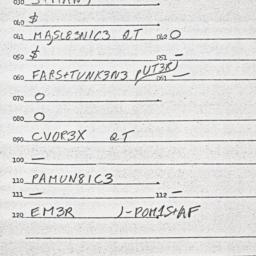 030
040 $
041 MAJSL8SN1C3 QT 042 O
050 $ 051 —
060 FARS+TUNK3N3 (UT3R) 061 —
070 O
080 O
090 CVOP3X QT
100 —
110 PAMUN81C3
111 — 112 —
120 EM3R )-POM1S+AF